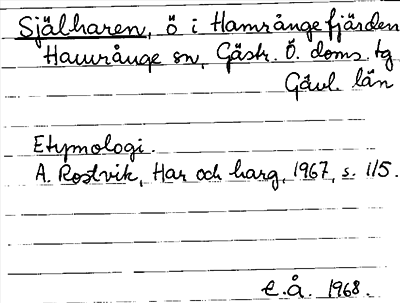 Själharen, ö i Hamrångefjärden
Hamrånge sn, Gästr. Ö. doms. tg
Gävl. län
Etymologi.
A. Rostvik, Har och harg, 1967, s. 115.
E.Å. 1968.